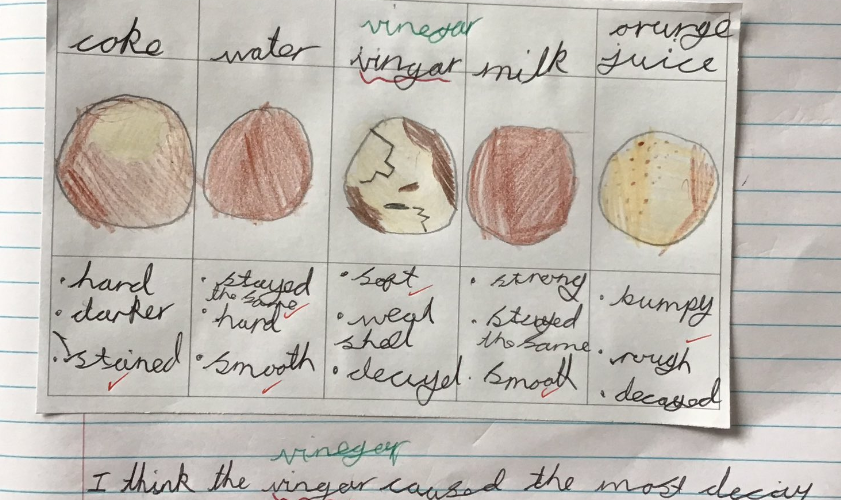 coke
water
vinegar
vingar
milk
orunge
juice
· hard
· darker
· stained
· stayed
the same
· hard
· smooth
· soft
· weak
shell
· decayed
· strong
· stayed
the same
· smooth
· bumpy
· rough
· decayed
vinegar
I think the vingar caused the most decay